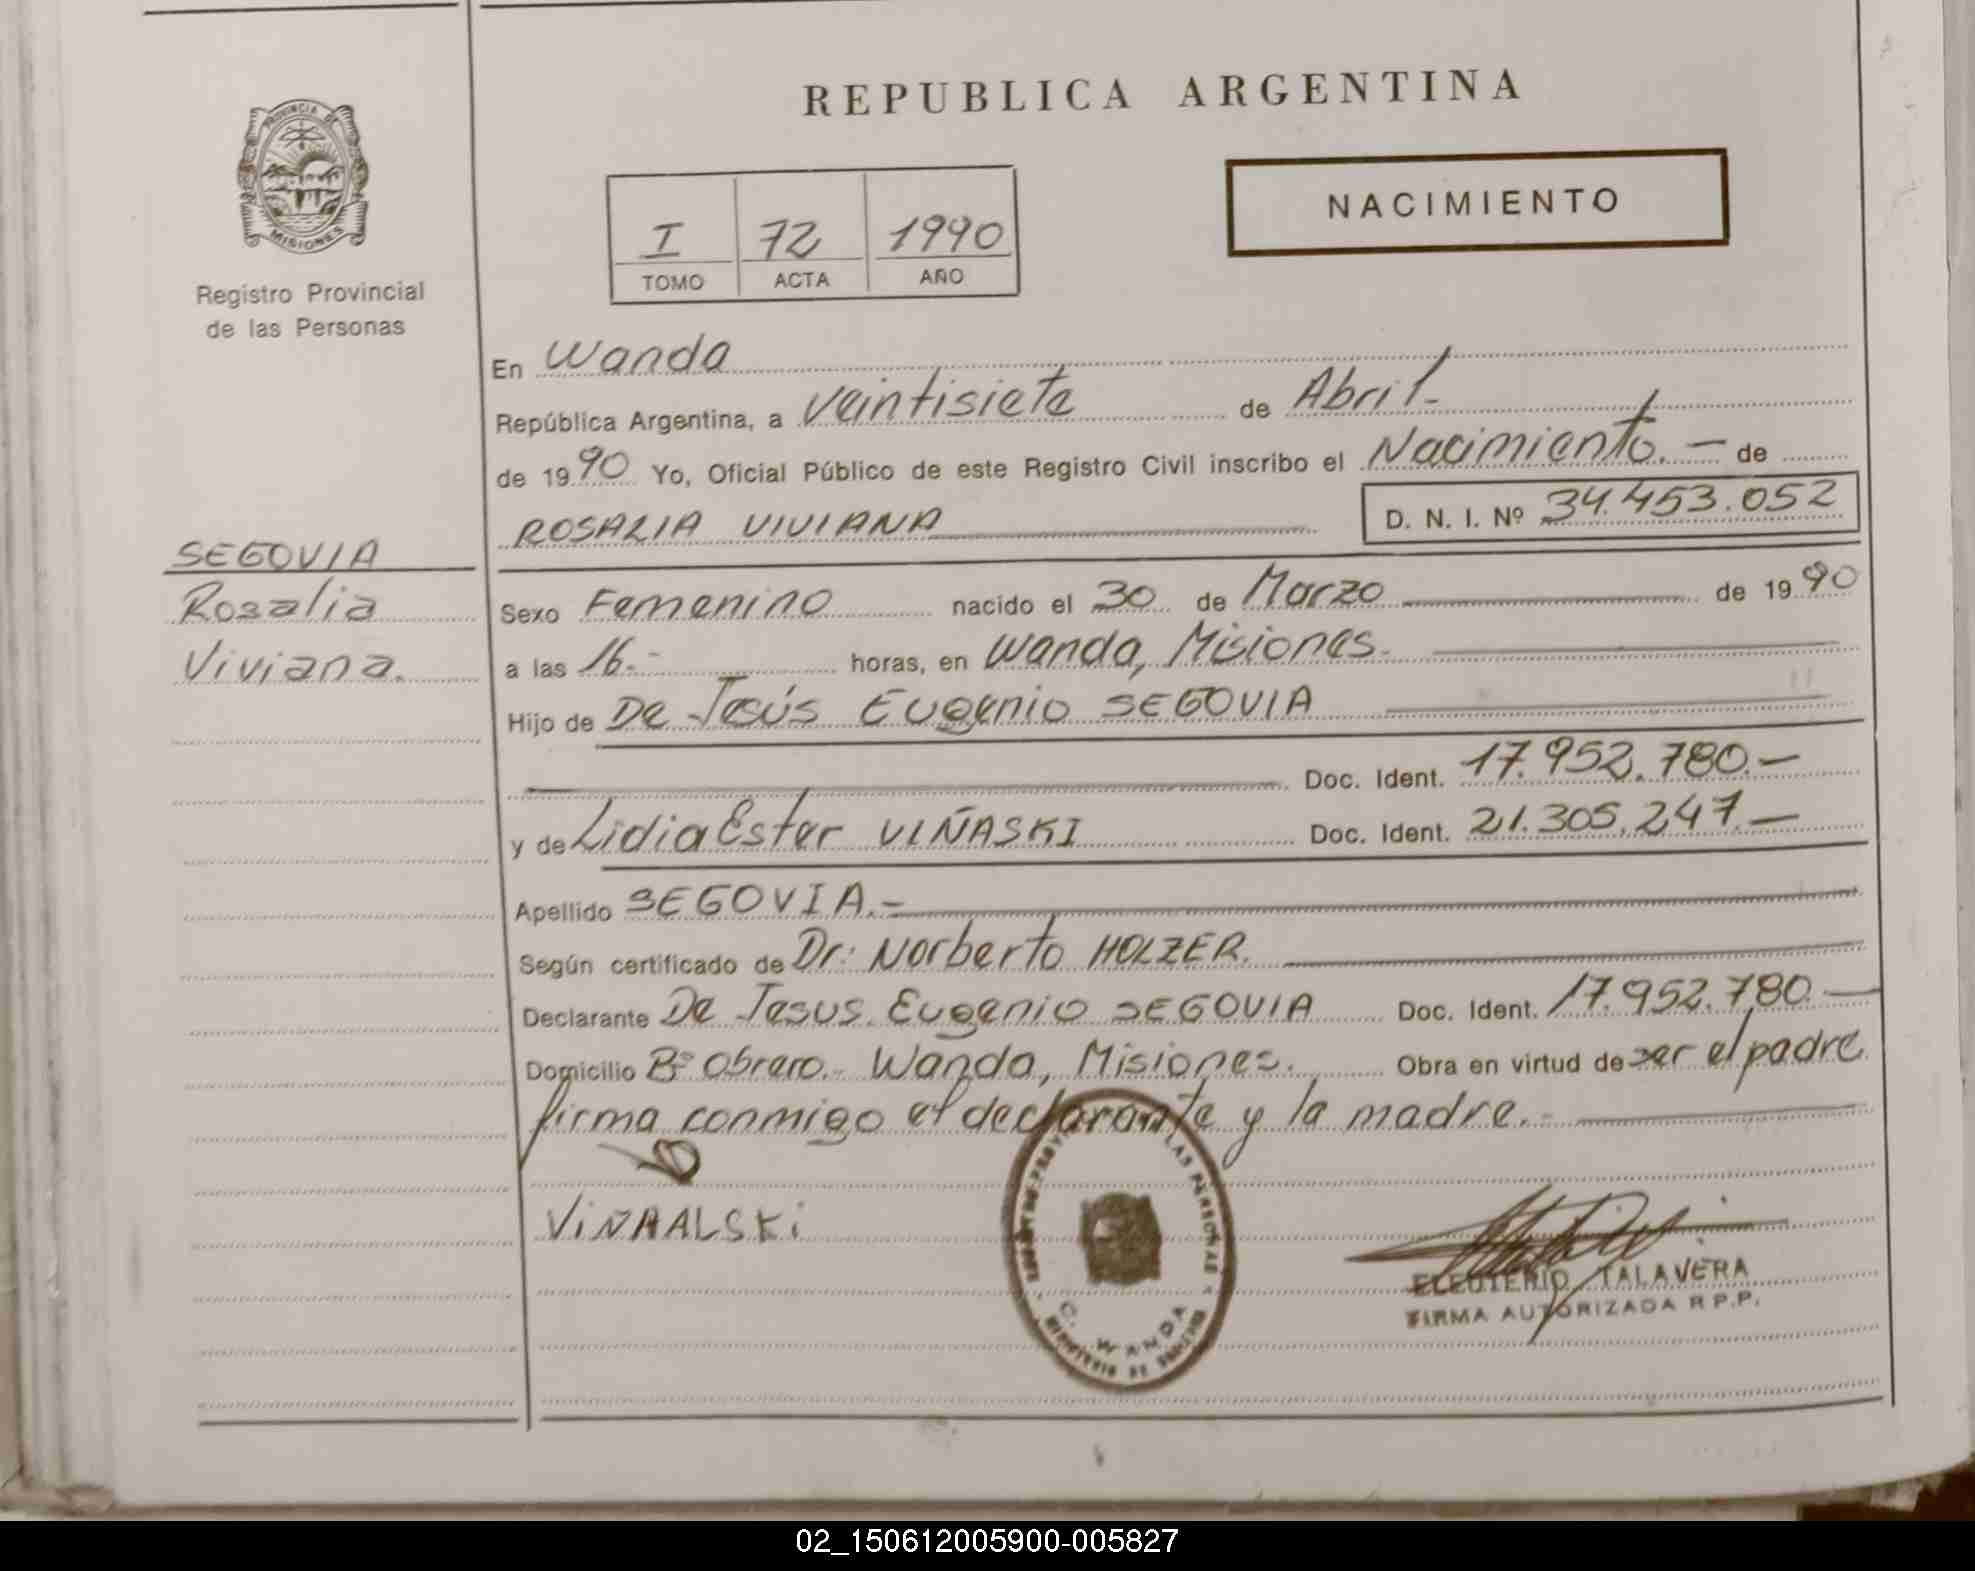 REPUBLICA ARGENTINA
PROVINCIA DE
MISIONES
Registro Provincial
de las Personas
I 72 1990
TOMO ACTA AÑO
NACIMIENTO
En Wanda
República Argentina, a veintisiete de Abril.-
de 1990 Yo, Oficial Público de este Registro Civil inscribo el Nacimiento. — de
ROSALIA VIVIANA D. N. I. Nº 34.453.052
SEGOVIA
Rosalia
Viviana.
Sexo Femenino nacido el 30 de Marzo de 1990
a las 16.- horas, en Wanda, Misiones.
Hijo de De Jesús Eugenio SEGOVIA
Doc. Ident. 17.952.780.—
y de Lidia Ester VIÑASKI Doc. Ident. 21.305.247.—
Apellido SEGOVIA.-
Según certificado de Dr: Norberto HOLZER.
Declarante De Jesus Eugenio SEGOVIA Doc. Ident. 17.952.780.—
Domicilio Bº Obrero.- Wanda, Misiones. Obra en virtud de ser el padre
firma conmigo el declarante y la madre.-
ViÑAALSKi
LAS PERSONAS
C. WANDA
ELEUTERIO TALAVERA
FIRMA AUTORIZADA R.P.P.
02_150612005900-005827